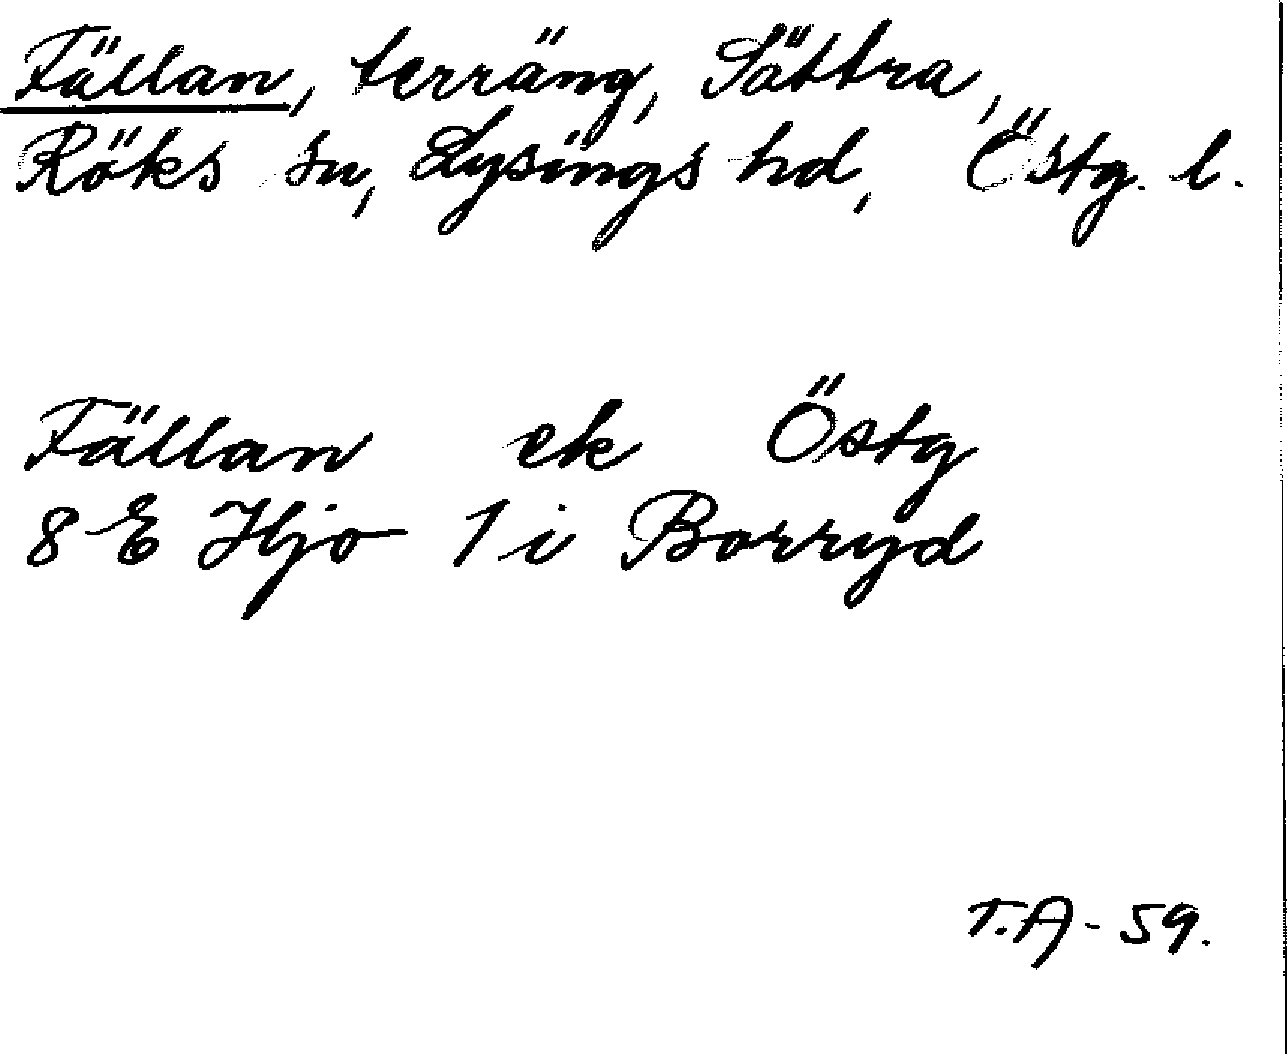 Fällan, terräng, Sättra,
Röks sn, Lysings hd, Östg. l.
Fällan ek Östg
8 E Hjo 1 i Borryd
T.A - 59.